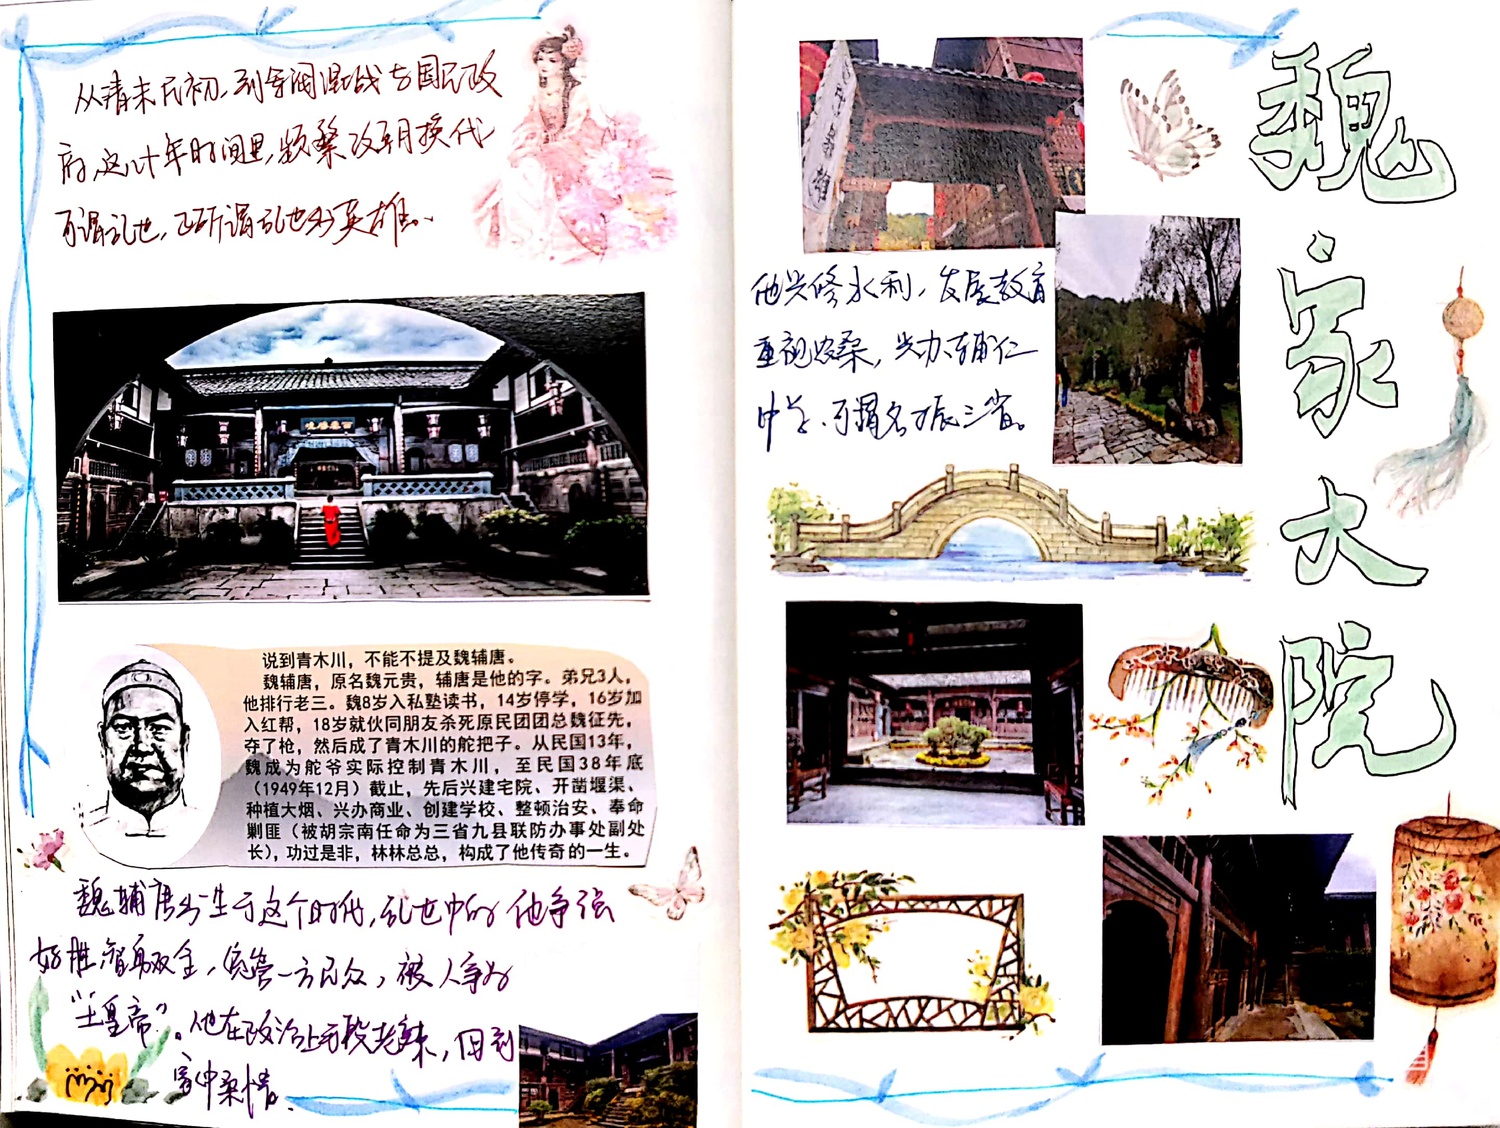 从清末民初,到军阀混战与国民政
府,这几十年时间里,频繁改朝换代
可谓乱世,正所谓乱世出英雄。
说到青木川,不能不提及魏辅唐。
魏辅唐,原名魏元贵,辅唐是他的字。弟兄3人,
他排行老三。魏8岁入私塾读书,14岁停学,16岁加
入红帮,18岁就伙同朋友杀死原民团团总魏征先,
夺了枪,然后成了青木川的舵把子。从民国13年,
魏成为舵爷实际控制青木川,至民国38年底
(1949年12月)截止,先后兴建宅院、开凿堰渠、
种植大烟、兴办商业、创建学校、整顿治安、奉命
剿匪(被胡宗南任命为三省九县联防办事处副处
长),功过是非,林林总总,构成了他传奇的一生。
魏辅唐出生于这个时代,乱世中的他争强
好胜,智勇双全,统管一方民众,被人称为
“土皇帝”。他在政治上手段老辣,回到
家中柔情。
魏家大院
他兴修水利,发展教育
重视农桑,兴办辅仁
中学,可谓名振三省。